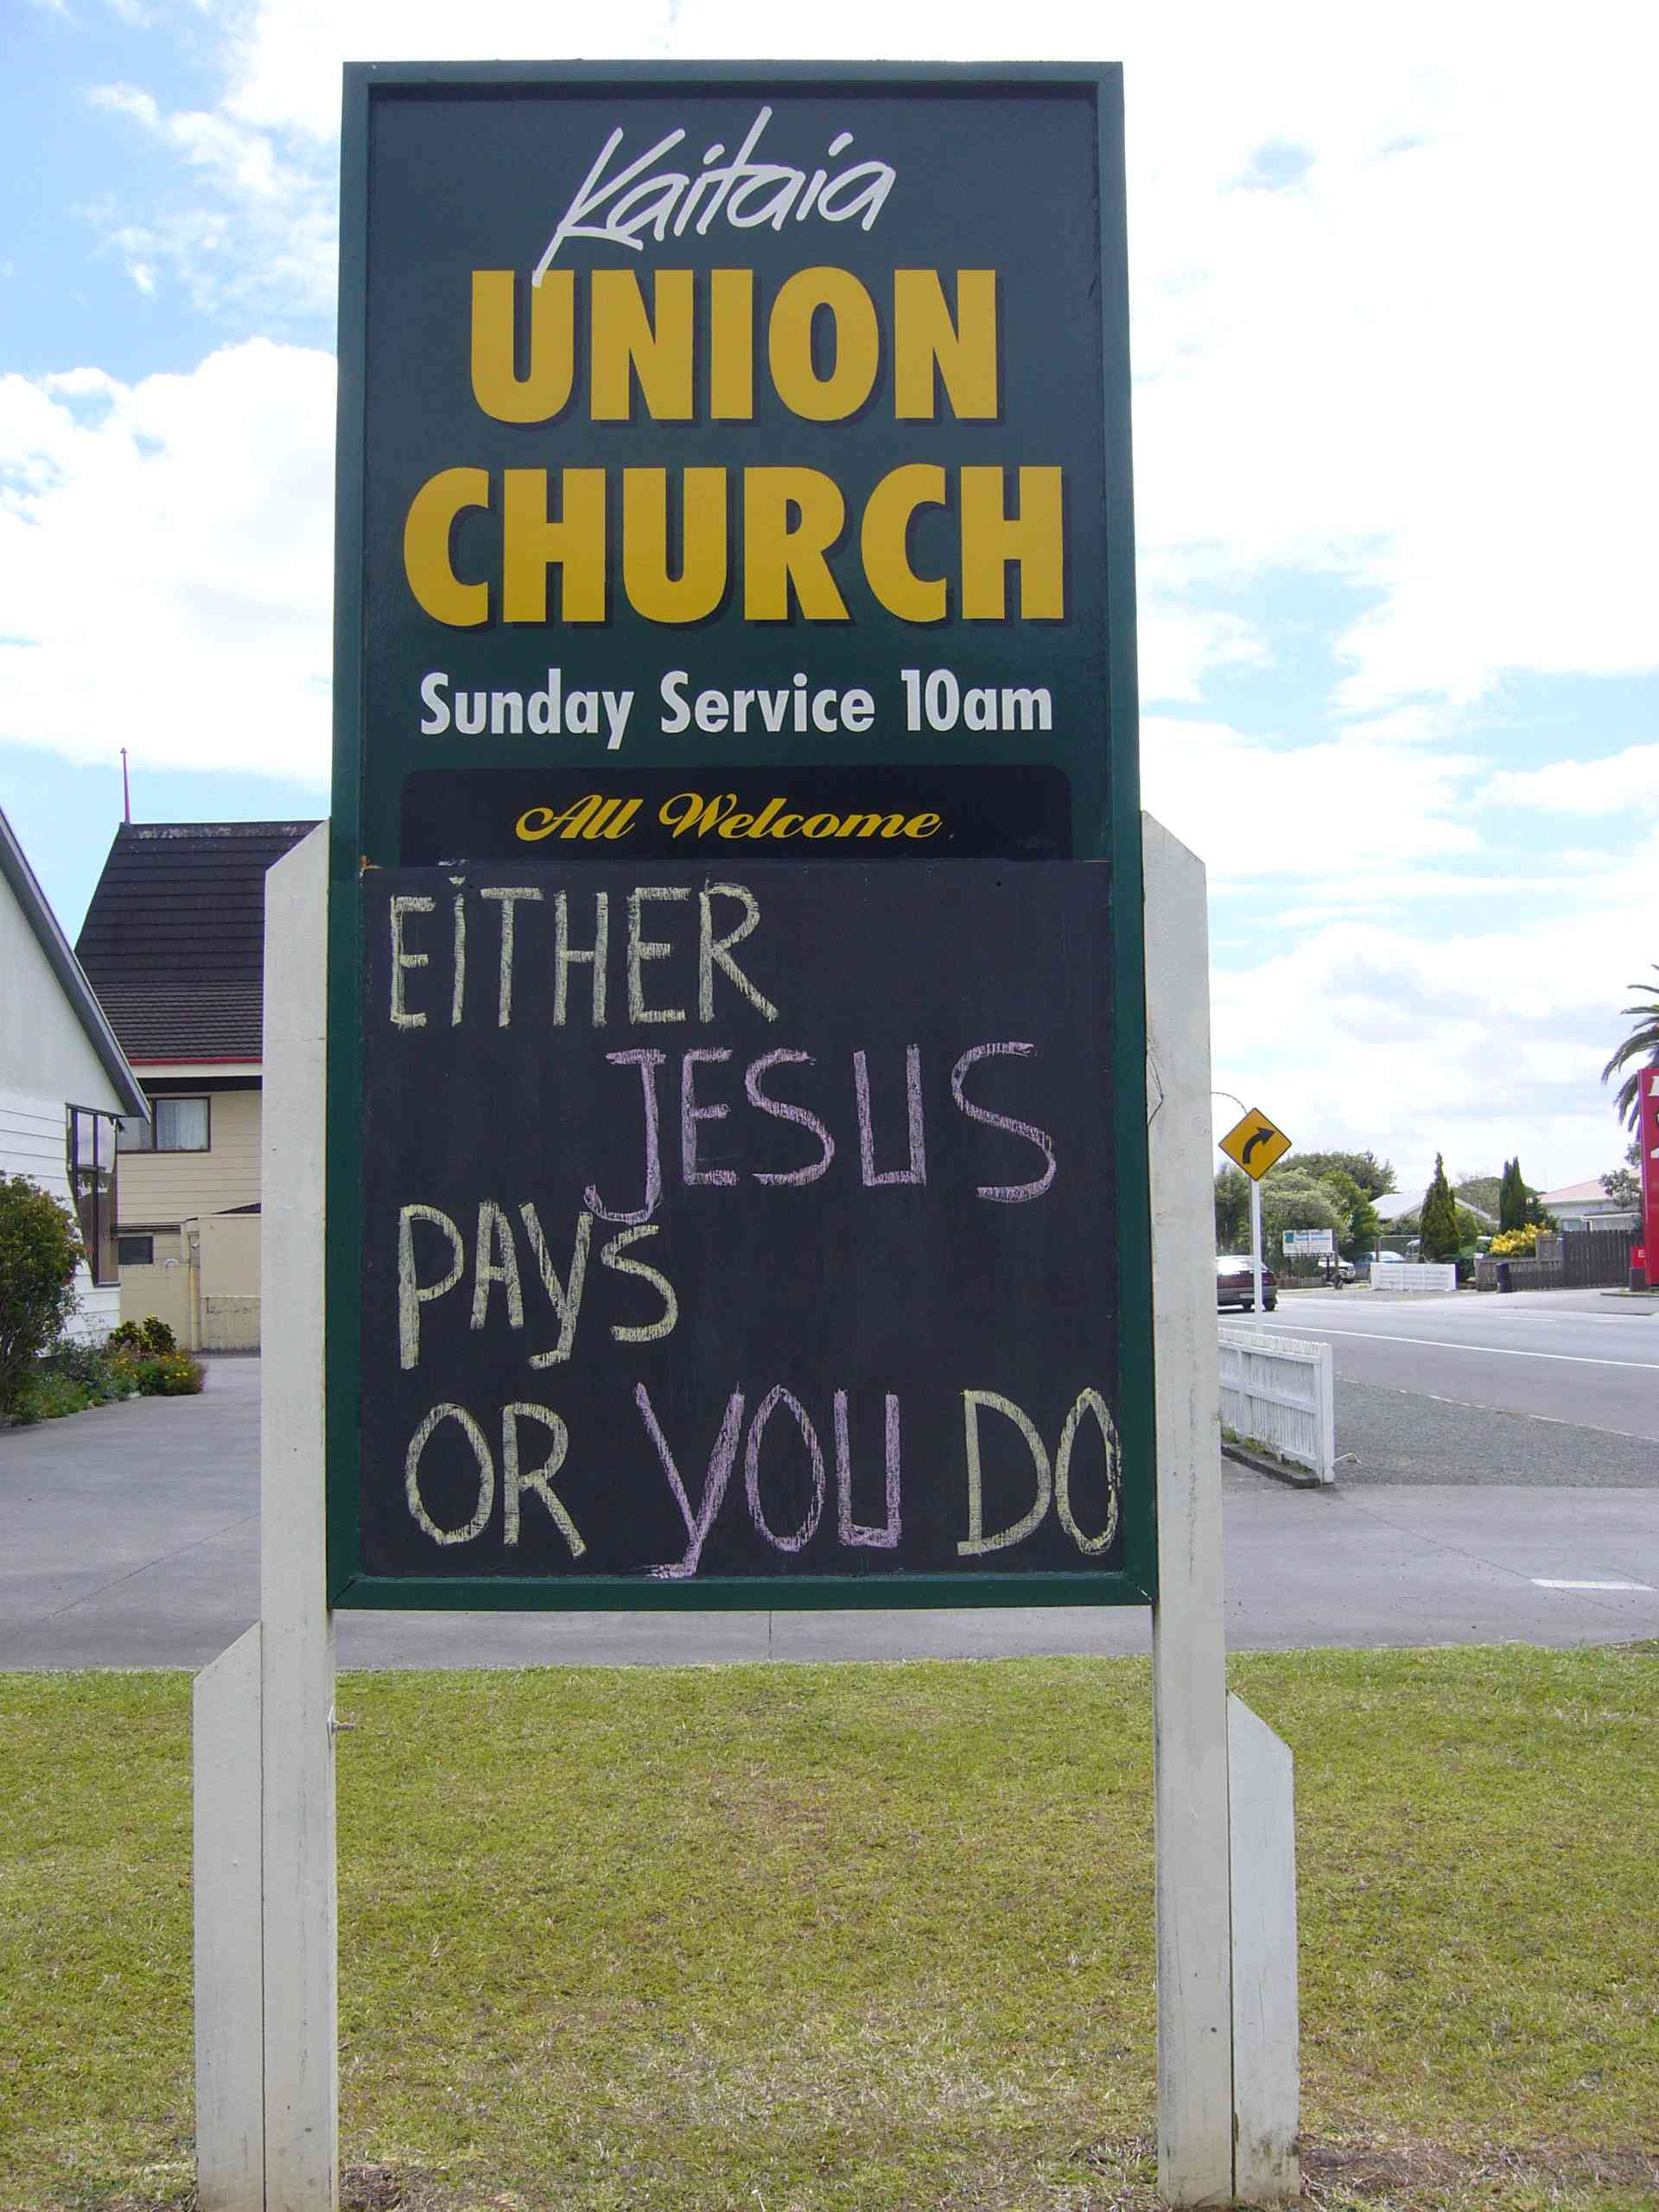 Kaitaia
UNION
CHURCH
Sunday Service 10am
All Welcome
EITHER
JESUS
PAYS
OR YOU DO